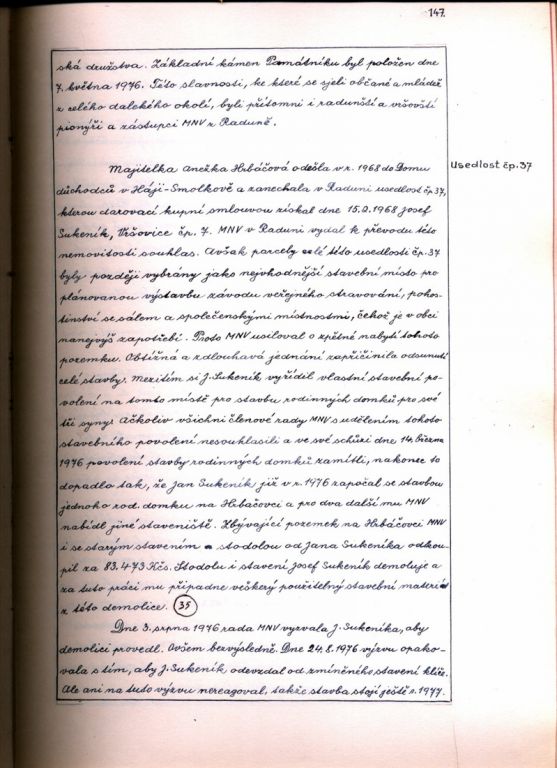 147.
ská družstva. Základní kámen Památníku byl položen dne
7. května 1976. Této slavnosti, ke které se sjeli občané a mládež
z celého dalekého okolí, byli přítomni i raduňští a vršovští
pionýři a zástupci MNV z Raduně.
Majitelka Anežka Hrbáčová odešla v r. 1968 do Domu
Usedlost čp. 37
důchodců v Háji-Smolkově a zanechala v Raduni usedlost čp. 37,
kterou darovací kupní smlouvou získal dne 15.2.1968 Josef
Sukeník, Vršovice čp. 7. MNV v Raduni vydal k převodu této
nemovitosti souhlas. Avšak parcely celé této usedlosti čp. 37
byly později vybrány jako nejvhodnější stavební místo pro
plánovanou výstavbu závodu veřejného stravování, pohos-
tinství se sálem a společenskými místnostmi, čehož je v obci
nanejvýš zapotřebí. Proto MNV usiloval o zpětné nabytí tohoto
pozemku. Obtížná a zdlouhavá jednání zapříčinila odsunutí
celé stavby. Mezitím si J. Sukeník vyřídil vlastní stavební po-
volení na tomto místě pro stavbu rodinných domků pro své
tři syny. Ačkoliv všichni členové rady MNV s udělením tohoto
stavebního povolení nesouhlasili a ve své schůzi dne 14. března
1976 povolení stavby rodinných domků zamítli, nakonec to
dopadlo tak, že Jan Sukeník již v r. 1976 započal se stavbou
jednoho rod. domku na Hrbáčovci a pro dva další mu MNV
nabídl jiné staveniště. Zbývající pozemek na Hrbáčovci MNV
i se starým stavením a stodolou od Jana Sukeníka odkou-
pil za 83.473 Kčs. Stodolu i stavení Josef Sukeník demoluje a
za tuto práci mu připadne veškerý použitelný stavební materiál
z této demolice. (35)
Dne 3. srpna 1976 rada MNV vyzvala J. Sukeníka, aby
demolici provedl. Ovšem bezvýsledně. Dne 24.8.1976 výzvu opako-
vala s tím, aby J. Sukeník odevzdal od zmíněného stavení klíče.
Ale ani na tuto výzvu nereagoval, takže stavba stojí ještě r. 1977.